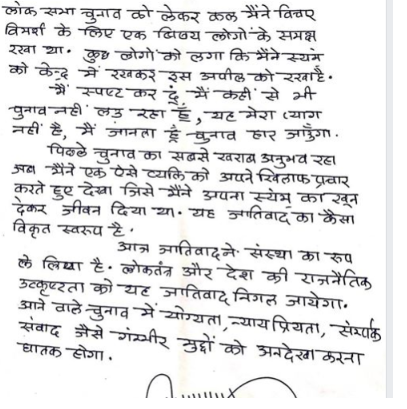 लोक सभा चुनाव को लेकर कल मैंने विचार
विमर्श के लिए एक विषय लोगों के समक्ष
रखा था. कुछ लोगों को लगा कि मैंने स्यंम
को केन्द्र में रखकर इस अपील को रखा है.
मैं स्पष्ट कर दूं, मैं कहीं से भी
चुनाव नहीं लड़ रहा हूँ, यह मेरा त्याग
नहीं है, मैं जानता हूँ चुनाव हार जाऊँगा.
पिछले चुनाव का सबसे खराब अनुभव रहा
जब मैंने एक ऐसे व्यक्ति को अपने खिलाफ प्रचार
करते हुए देखा जिसे मैंने अपना स्यंम् का खून
देकर जीवन दिया था. यह जातिवाद का कैसा
विकृत स्वरूप है.
आज जातिवाद ने संस्था का रूप
ले लिया है. लोकतंत्र और देश की राजनैतिक
उत्कृष्टता को यह जातिवाद निगल जायेगा.
आने वाले चुनाव में योग्यता, न्याय प्रियता, संर्म्पक
संवाद जैसे गंम्भीर मुद्दों को अनदेखा करना
घातक होगा.